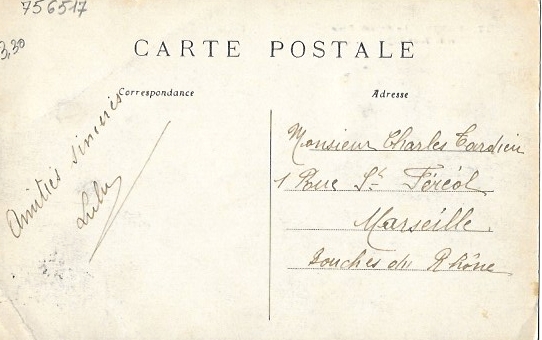 756517
3,30
CARTE POSTALE
Correspondance
Adresse
Amitiés sincères
Lulu
Monsieur Charles Tardieu
1 Rue St Féréol
Marseille
Bouches du Rhône